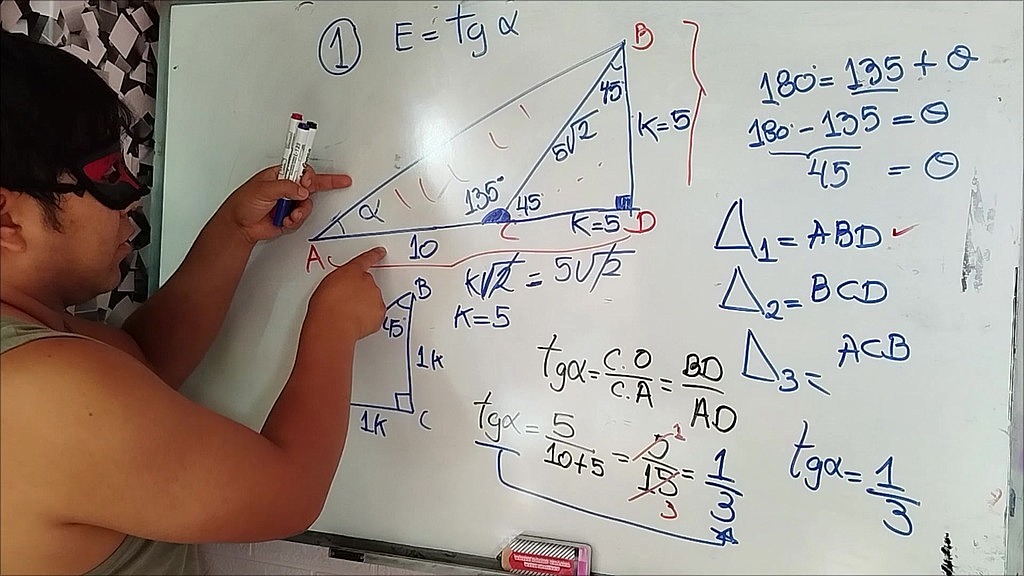 1 E = tg α
B
45
5√2
K=5
135°
45
α
A
10
C
K=5
D
K√2 = 5√2
K=5
B
45°
1K
1K
C
180 = 135 + θ
180 - 135 = θ
45 = θ
△1 = ABD ✓
△2 = BCD
△3 = ACB
tgα = C.O/C.A = BD/AD
tgα = 5/10+5 = 5/15 = 1/3
1
3
tgα = 1/3